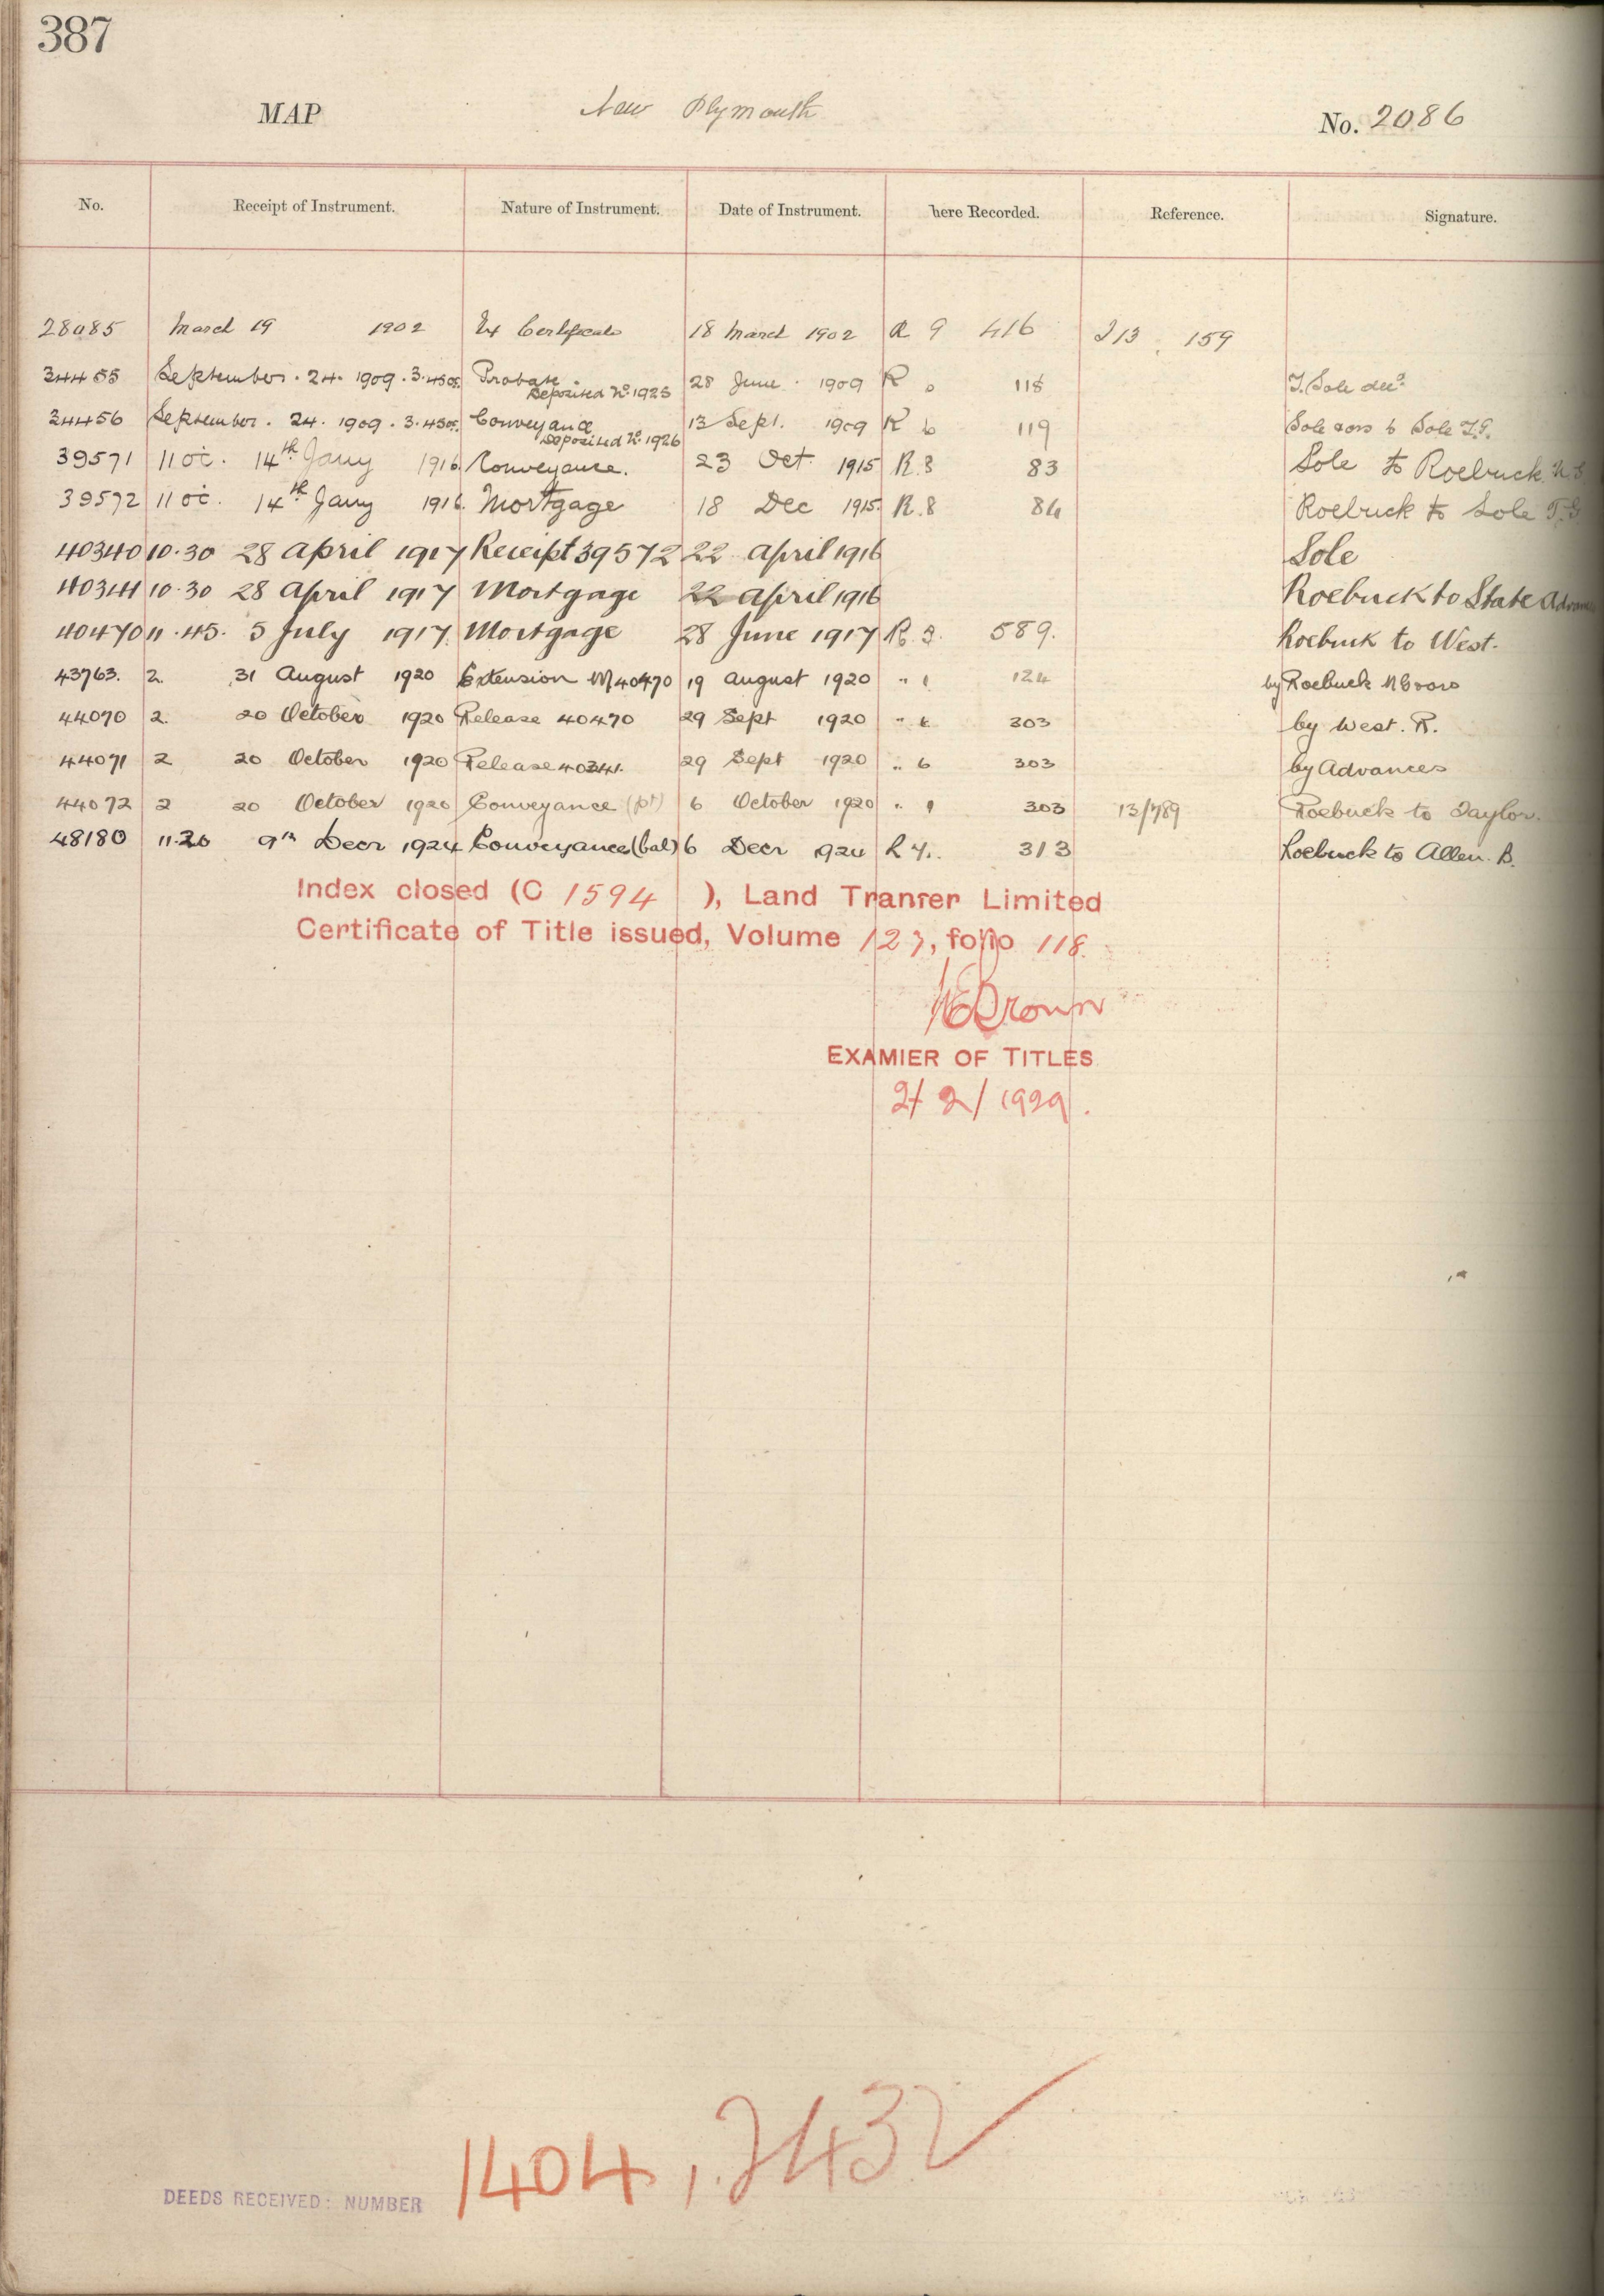 387
MAP New Plymouth No. 2086
No. Receipt of Instrument. Nature of Instrument. Date of Instrument. here Recorded. Reference. Signature.
28085 March 19 1902 Ex Certificate 18 March 1902 R 9 416 I13. 159
34455 September. 24. 1909. 3.45 Probate. 28 June. 1909 R 118 T. Sole decd.
Deposited No. 1925
34456 September. 24. 1909. 3.45 Conveyance 13 Sept. 1909 R 6 119 Sole to Sole T.G.
Deposited No. 1926
39571 11 oc. 14th Jany 1916 Conveyance. 23 Oct. 1915 R.8 83 Sole to Roebuck
39572 11 oc. 14th Jany 1916. Mortgage 18 Dec 1915. R.8 84 Roebuck to Sole T.G
40340 10.30 28 April 1917 Receipt 39572 22 April 1916 Sole
40341 10.30 28 April 1917 Mortgage 22 April 1916 Roebuck to State Advan
40470 11.45. 5 July 1917. Mortgage 28 June 1917 R. 589. Roebuck to West.
43763. 2. 31 August 1920 Extension M 40470 19 August 1920 " 124 by Roebuck
44070 2. 20 October 1920 Release 40470 29 Sept 1920 " 303 by West. R.
44071 2 20 October 1920 Release 40341. 29 Sept 1920 " 303 by Advances
44072 2 20 October 1920 Conveyance (pt) 6 October 1920 " 303 13/789 Roebuck to Taylor.
48180 11.20 9th Decr 1924 Conveyance (bal) 6 Decr 1924 R 313 Roebuck to Allen. B.
Index closed (C 1594 ), Land Tranfer Limited
Certificate of Title issued, Volume 123, folio 118.
Brown
EXAMIER OF TITLES
2/ 2/ 1929.
1404, 2432
DEEDS RECEIVED: NUMBER